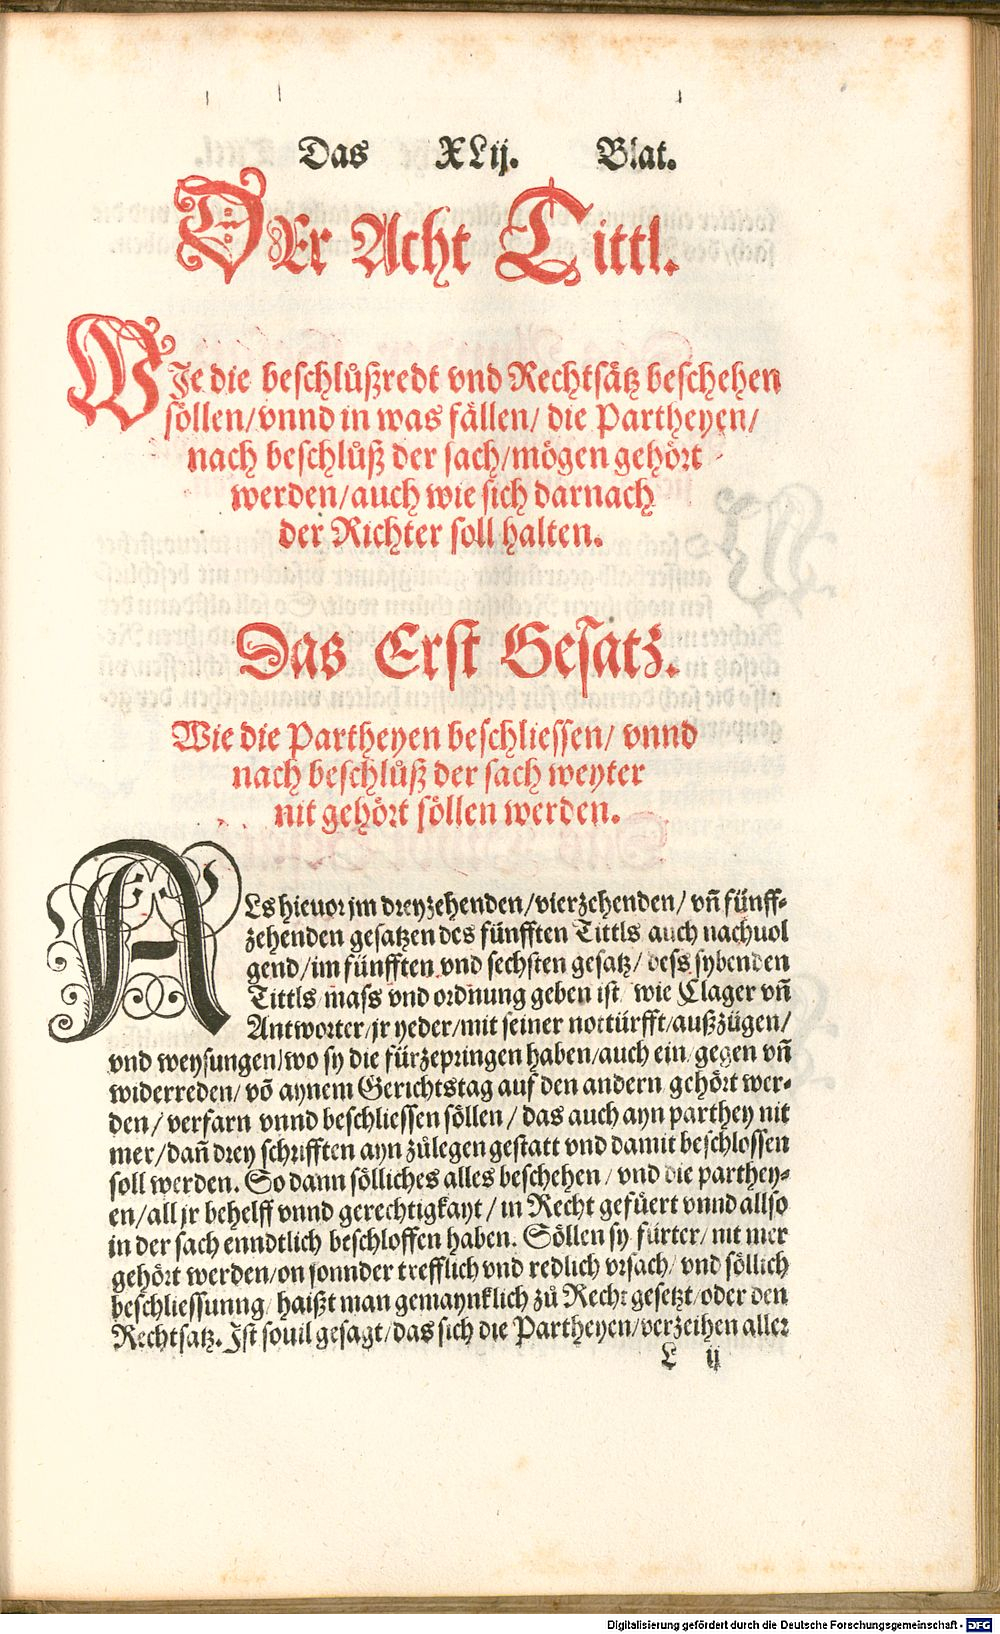 Das XLij. Blat.
DEr Acht Tittl.
WIe die beschlůßredt vnd Rechtsåtz beschehen
söllen/ vnnd in was fällen/ die Partheyen/
nach beschlůß der sach/ mögen gehört
werden/ auch wie sich darnach
der Richter soll halten.
Das Erst Gesatz.
Wie die Partheyen beschliessen/ vnnd
nach beschlůß der sach weyter
nit gehört söllen werden.
ALs hieuor jm dreyzehenden/ vierzehenden/ vñ fünff-
zehenden gesatzen des fünfften Tittls auch nachuol
gend/ im fünfften vnd sechsten gesatz/ dess sybenden
Tittls mass vnd ordnung geben ist/ wie Clager vñ
Antworter/ jr yeder/ mit seiner notturfft/ außzügen/
vnd weysungen/ wo sy die fürzepringen haben/ auch ein gegen vñ
widerreden/ võ aynem Gerichtstag auf den andern gehört wer-
den/ verfarn vnnd beschliessen söllen/ das auch ayn parthey nit
mer/ dañ drey schrifften ayn zůlegen gestatt vnd damit beschlossen
soll werden. So dann sölliches alles beschehen/ vnd die parthey-
en/ all jr behelff vnnd gerechtigkayt/ in Recht gefüert vnnd allso
in der sach enndtlich beschlossen haben. Söllen sy fürter/ nit mer
gehört werden/ on sonnder trefflich vnd redlich vrsach/ vnd söllich
beschliessunng/ haißt man gemaynklich zů Recht gesetzt/ oder den
Rechtsatz. Ist souil gesagt/ das sich die Partheyen/ verzeihen aller
L ij
Digitalisierung gefördert durch die Deutsche Forschungsgemeinschaft - DFG